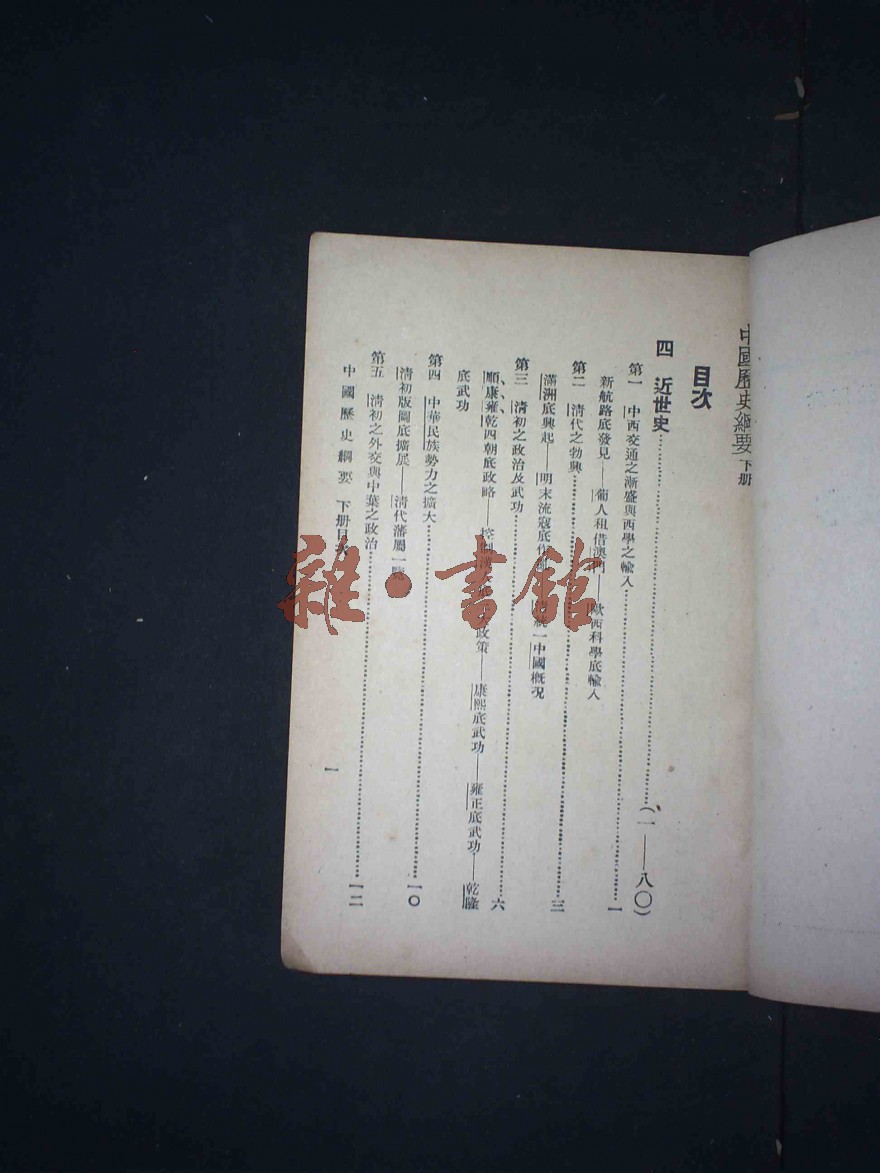 中國歷史綱要 下册
目次
四 近世史……(一——八〇)
第一 中西交通之漸盛與西學之輸入……一
新航路底發見——葡人租借澳門——歐西科學底輸入
第二 清代之勃興……三
滿洲底興起——明末流寇底作 統一中國概況
第三 清初之政治及武功……六
順、康、雍、乾四朝底政略——控制漢 政策——康熙底武功——雍正底武功——乾隆
底武功
第四 中華民族勢力之擴大……一〇
清初版圖底擴展——清代藩屬一覽
第五 清初之外交與中葉之政治……一二
中國歷史綱要 下册目次
一
雜·書館